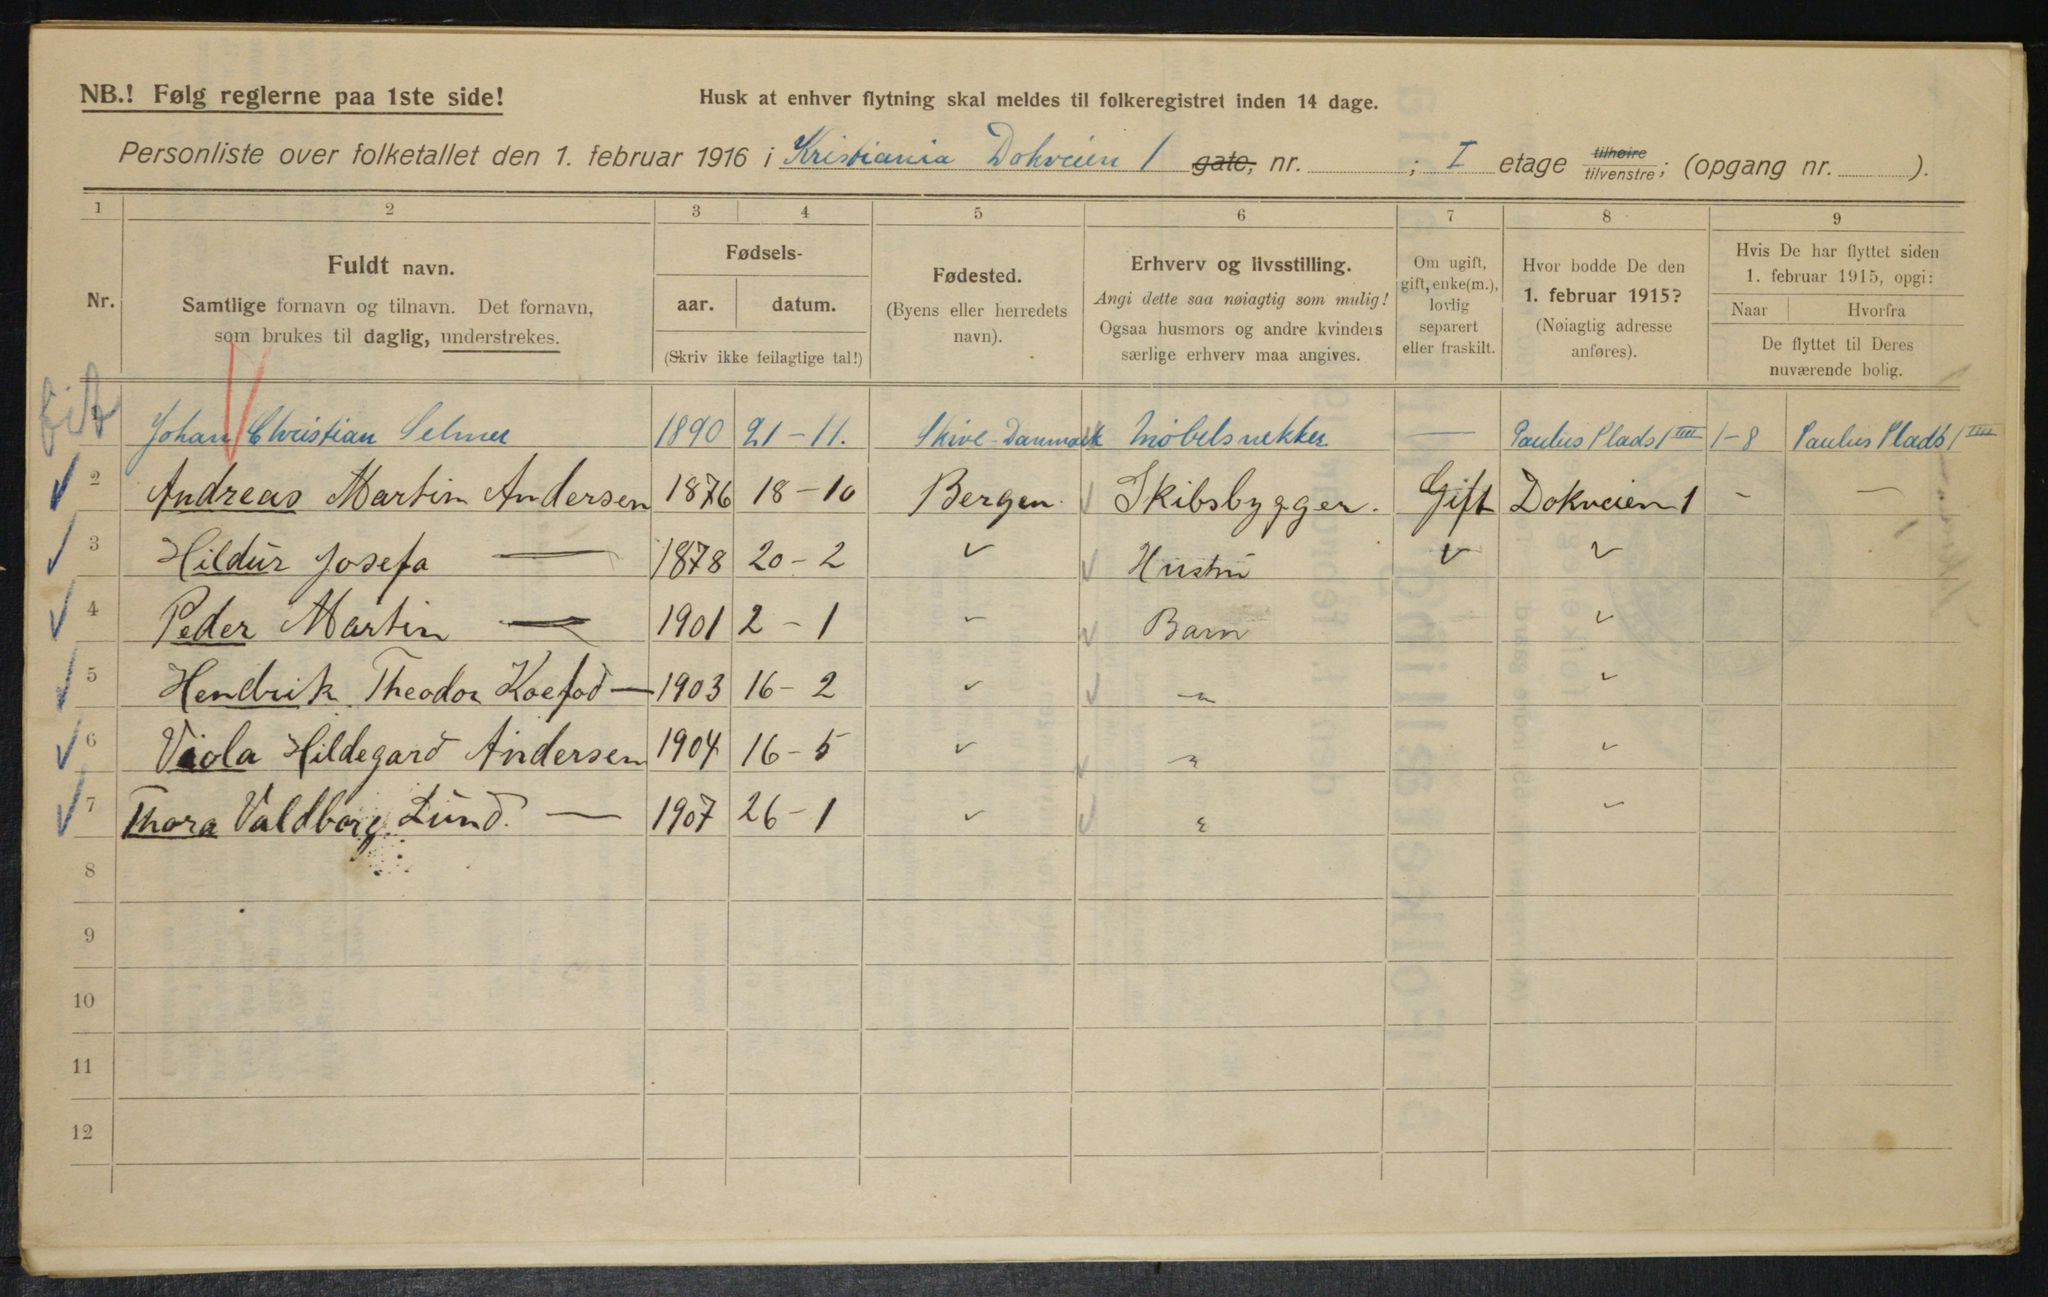 NB.! Følg reglerne paa 1ste side!
Husk at enhver flytning skal meldes til folkeregistret inden 14 dage.
Personliste over folketallet den 1. februar 1916 i Kristiania Dokveien 1 gate, nr. ; I etage tilhøire tilvenstre; (opgang nr. ).
1 2 3 4 5 6 7 8 9
Nr.
Fuldt navn.
Samtlige fornavn og tilnavn. Det fornavn,
som brukes til daglig, understrekes.
Fødsels-
aar. datum.
(Skriv ikke feilagtige tal!)
Fødested.
(Byens eller herredets
navn).
Erhverv og livsstilling.
Angi dette saa nøiagtig som mulig!
Ogsaa husmors og andre kvinders
særlige erhverv maa angives.
Om ugift,
gift, enke(m.),
lovlig
separert
eller fraskilt.
Hvor bodde De den
1. februar 1915?
(Nøiagtig adresse
anføres).
Hvis De har flyttet siden
1. februar 1915, opgi:
Naar Hvorfra
De flyttet til Deres
nuværende bolig.
1 Johan Christian Selmer 1890 21-11. Skive-Danmark Møbelsnekker — Paulus Plads 1 IIII 1-8 Paulus Plads 1 IIII
2 Andreas Martin Andersen 1876 18-10 Bergen. Skibsbygger. Gift Dokveien 1 - -
3 Hildur Josefa — 1878 20-2 Hustru
4 Peder Martin — 1901 2-1 Barn
5 Hendrik Theodor Koefod — 1903 16-2 -"-
6 Viola Hildegard Andersen 1904 16-5 -"-
7 Thora Valdborg Lund. — 1907 26-1 "
8
9
10
11
12